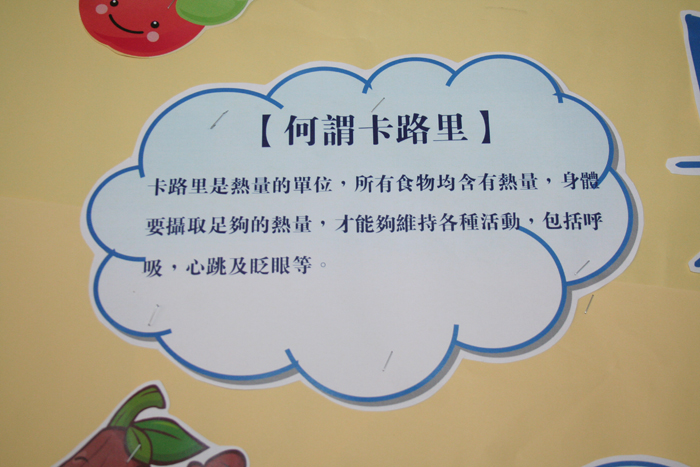 【何謂卡路里】
卡路里是熱量的單位，所有食物均含有熱量，身體
要攝取足夠的熱量，才能夠維持各種活動，包括呼
吸，心跳及眨眼等。